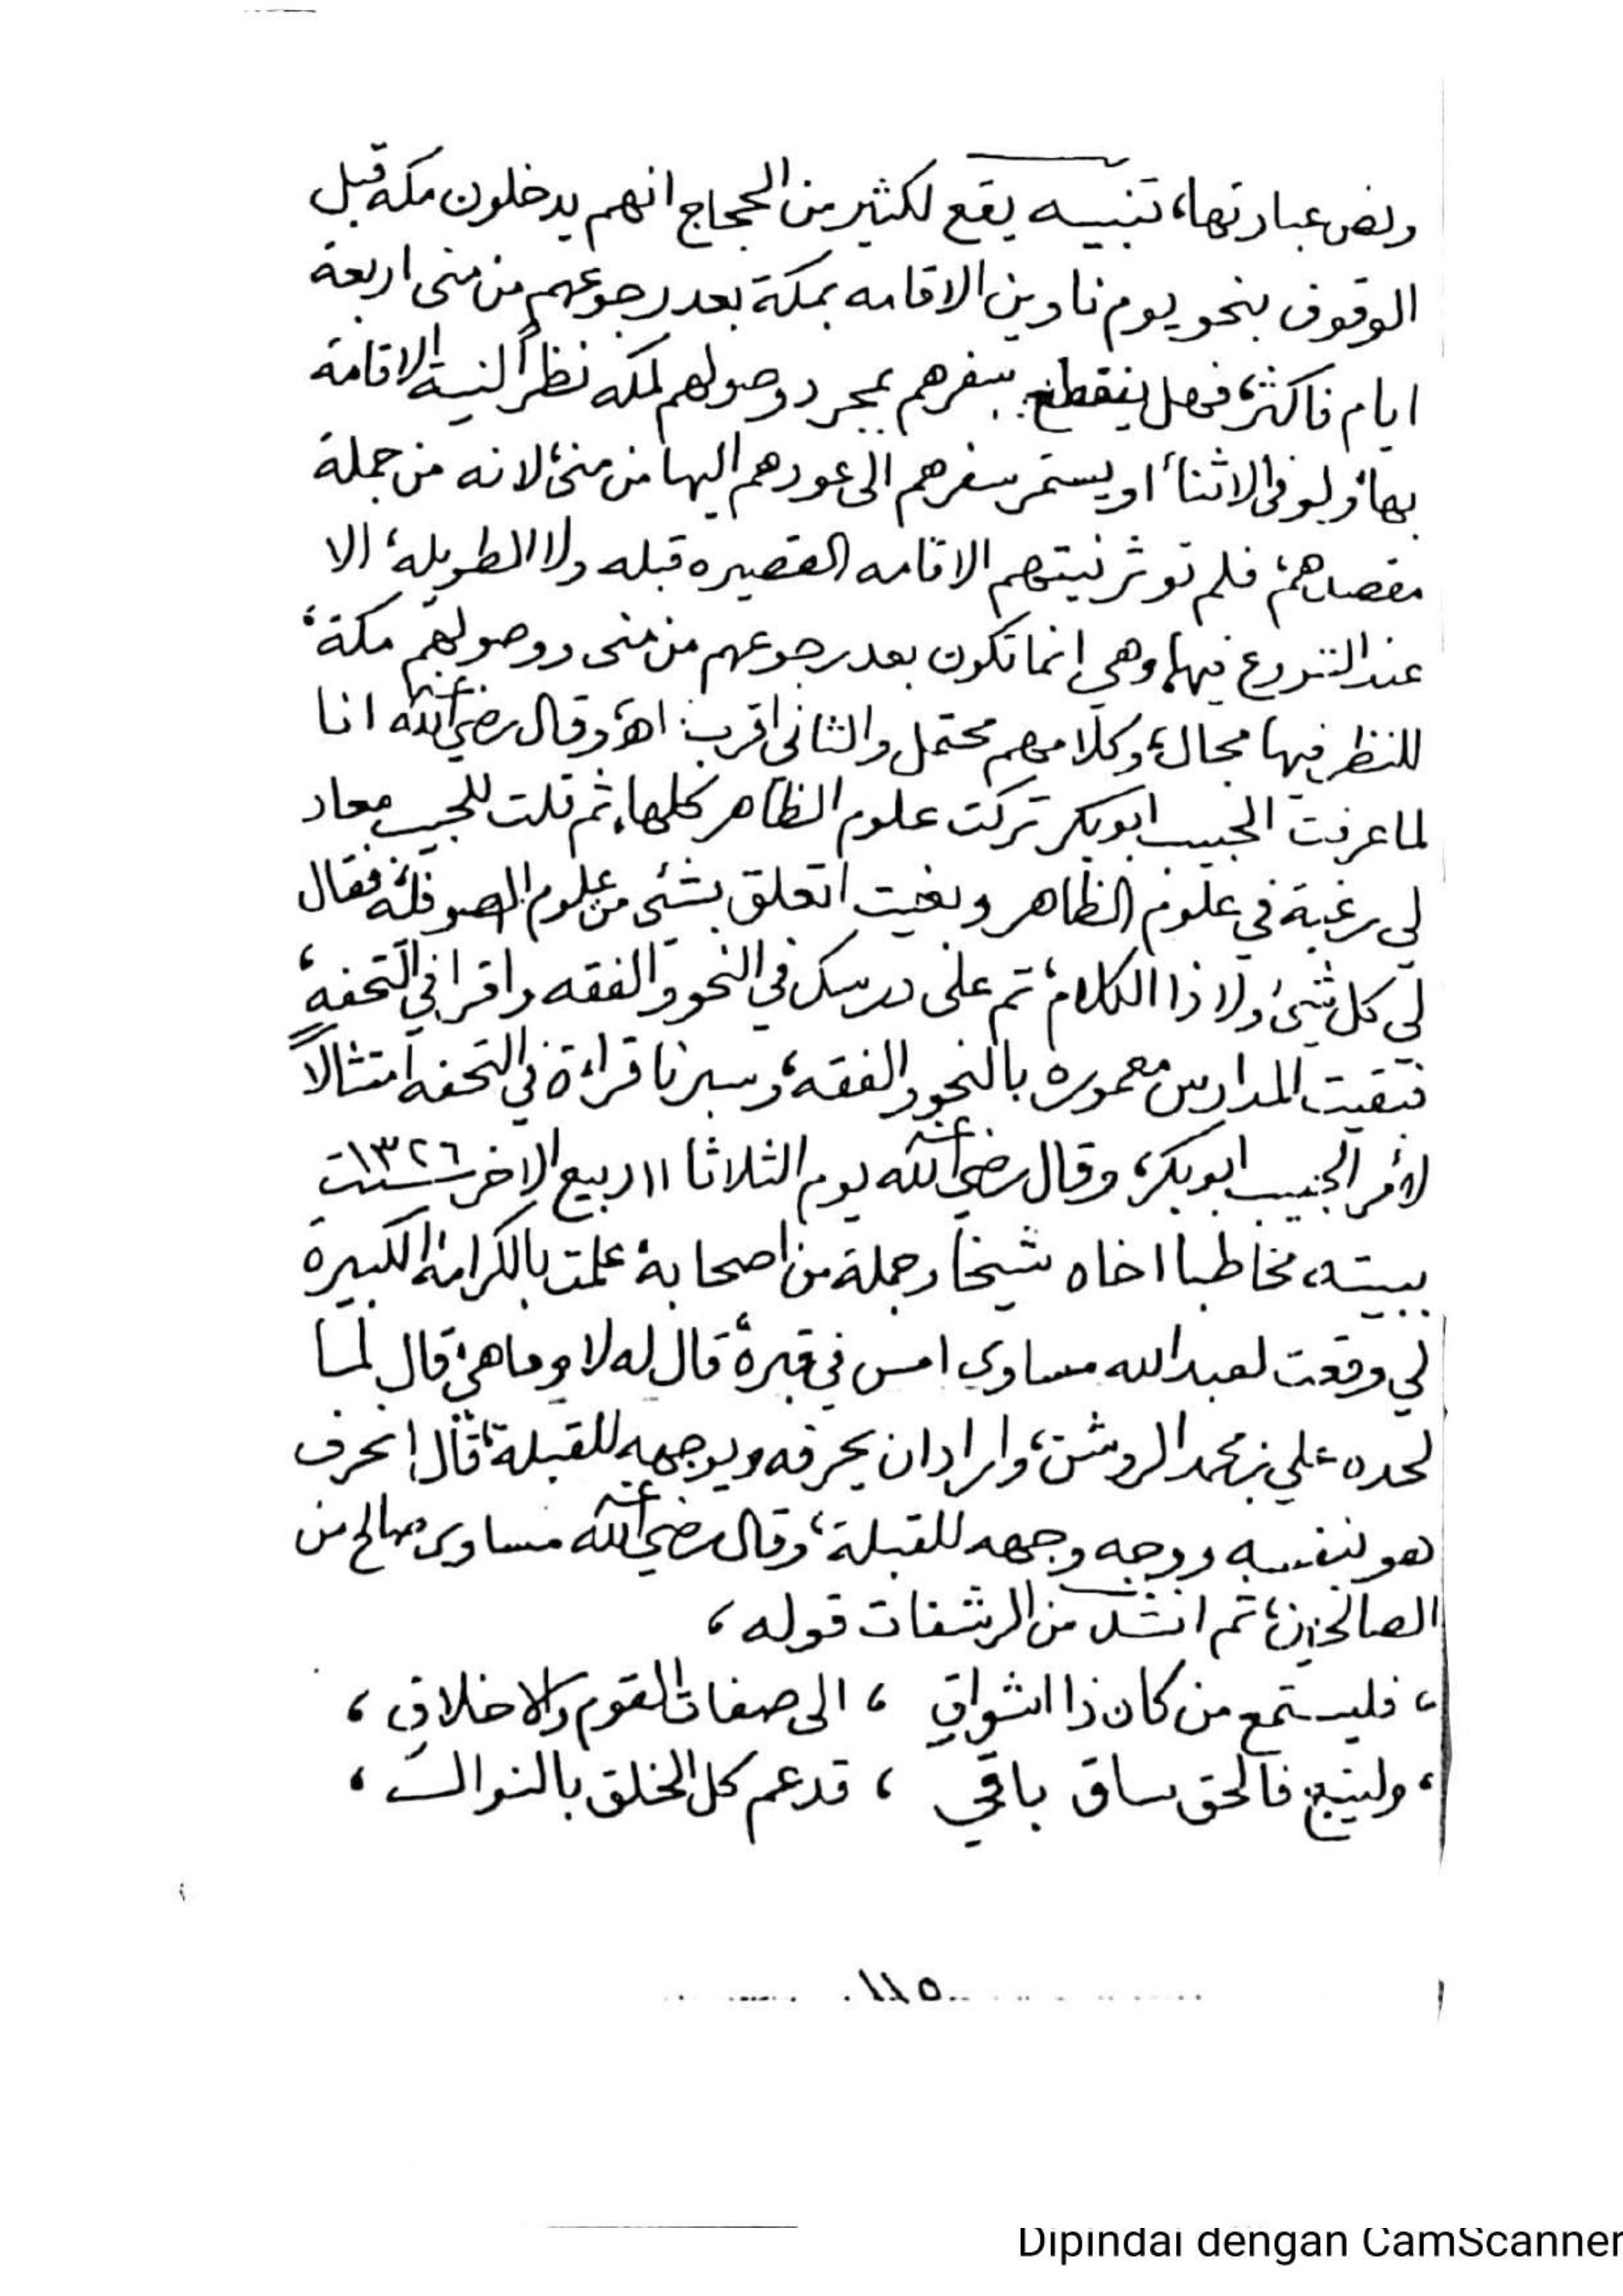 ونص عبارتها، تنبيه يقع لكثير من الحجاج انهم يدخلون مكة قبل
الوقوف بنحو يوم ناوين الاقامه بمكة بعد رجوعهم من منى اربعة
ايام فاكثر، فهل ينقطع سفرهم بمجرد وصولهم لمكه نظراً لنية الاقامة
بها، ولو في الاثناء او يستمر سفرهم الى عودهم اليها من منى، لانه من جملة
مقصدهم، فلم توثر نيتهم الاقامه القصيره قبله ولا الطويله، الا
عند الشروع فيها، وهي انما تكون بعد رجوعهم من منى ووصولهم مكة،
للنظر فيها مجال، وكلامهم محتمل والثاني اقرب، اه، وقال رضي الله عنه انا
لما عرفت الحبيب ابوبكر تركت علوم الظاهر كلها، ثم قلت للحبيب معاد
لي رغبة في علوم الظاهر وبغيت اتعلق بشئى من علوم الصوفية، فقال
لي كل شئ، ولا ذا الكلام، تم على درسك في النحو والفقه واقرا في التحفه،
فبقيت المدارس معموره بالنحو والفقه، وسبرنا قراءة في التحفه امتثالاً
لأمر الحبيب ابوبكر، وقال رضي الله عنه يوم الثلاثا ١١ ربيع الاخر سنة ١٣٢٦
ببيته، مخاطبا اخاه شيخا وجملة من اصحابه، علمت بالكرامة الكبيرة
لي وقعت لعبدالله مساوى امس في قبره، قال له لا وماهي، قال لما
لحده علي بن محمد الروشن، واراد ان يحرفه ويوجهه للقبلة، قال انحرف
هو بنفسه ووجه وجهه للقبلة، وقال رضي الله عنه مساوى صالح من
الصالحين، ثم انشد من الرشفات قوله،
، فليستمع من كان ذا اشواقِ ، الى صفات القوم والاخلاقِ ،
، وليتبع فالحق ساق باقي ، قد عم كل الخلق بالنوال ،
١١٥
Dipindai dengan CamScanner